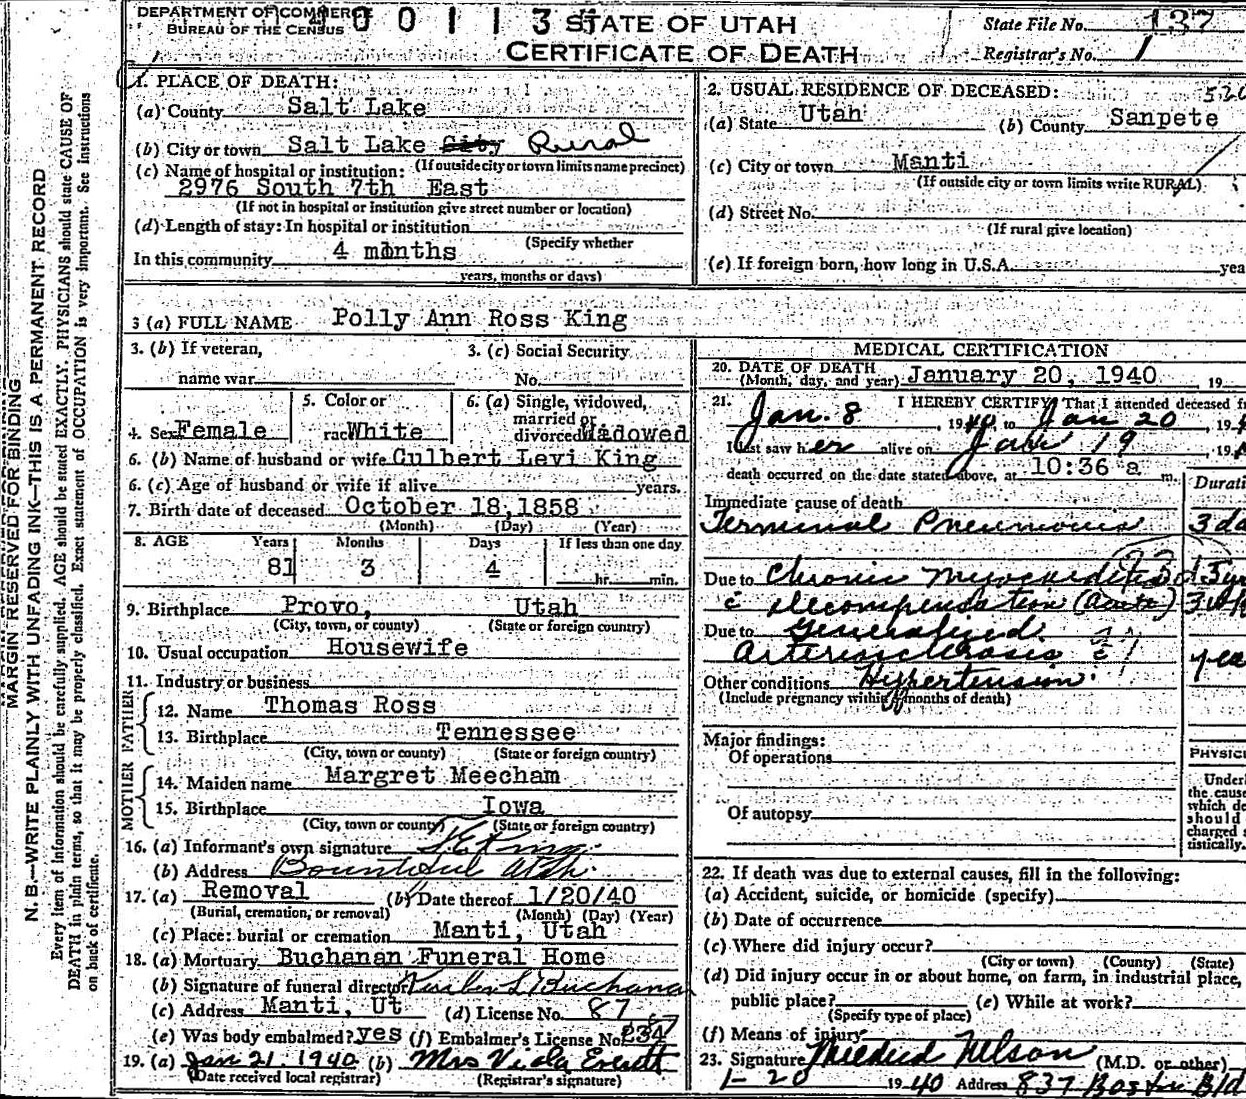 DEPARTMENT OF COMMERCE
BUREAU OF THE CENSUS
0 0 1 1 3
STATE OF UTAH
CERTIFICATE OF DEATH
State File No. 137
Registrar's No. 1
1. PLACE OF DEATH:
(a) County Salt Lake
(b) City or town Salt Lake City Rural
(If outside city or town limits name precinct)
(c) Name of hospital or institution:
2976 South 7th East
(If not in hospital or institution give street number or location)
(d) Length of stay: In hospital or institution
(Specify whether
In this community 4 months
years, months or days)
2. USUAL RESIDENCE OF DECEASED:
(a) State Utah (b) County Sanpete
(c) City or town Manti
(If outside city or town limits write RURAL)
(d) Street No.
(If rural give location)
(e) If foreign born, how long in U.S.A. yea
3 (a) FULL NAME Polly Ann Ross King
3. (b) If veteran,
name war
3. (c) Social Security
No.
4. Sex Female
5. Color or
race White
6. (a) Single, widowed,
married or
divorced Widowed
6. (b) Name of husband or wife Culbert Levi King
6. (c) Age of husband or wife if alive years.
7. Birth date of deceased October 18, 1858
(Month) (Day) (Year)
8. AGE Years Months Days If less than one day
81 3 4 hr. min.
9. Birthplace Provo, Utah
(City, town, or county) (State or foreign country)
10. Usual occupation Housewife
11. Industry or business
FATHER
12. Name Thomas Ross
13. Birthplace Tennessee
(City, town or county) (State or foreign country)
MOTHER
14. Maiden name Margret Meecham
15. Birthplace Iowa
(City, town or county) (State or foreign country)
16. (a) Informant's own signature King
(b) Address Bountiful Utah
17. (a) Removal (b) Date thereof 1/20/40
(Burial, cremation, or removal) (Month) (Day) (Year)
(c) Place: burial or cremation Manti, Utah
18. (a) Mortuary Buchanan Funeral Home
(b) Signature of funeral director Buchanan
(c) Address Manti, Ut (d) License No. 87
(e) Was body embalmed? yes (f) Embalmer's License No. 234
19. (a) Jan 21, 1940 (b) Mrs Viola Everett
(Date received local registrar) (Registrar's signature)
MEDICAL CERTIFICATION
20. DATE OF DEATH
(Month, day, and year) January 20, 1940, 19
21. I HEREBY CERTIFY, That I attended deceased fr
Jan. 8, 1940 to Jan 20, 19
I last saw her alive on Jan 19, 19
death occurred on the date stated above, at 10:36 a m.
Durati
Immediate cause of death
Terminal Pneumonia 3 da
Due to Chronic Myocarditis 5 yr
c̄ decompensation (acute) 3 wk
Due to Generalized
arteriosclerosis c̄ yea
Other conditions Hypertension
(Include pregnancy within months of death)
Major findings:
Of operations
Of autopsy
PHYSIC
Under
the cause
which de
should
charged s
tistically.
22. If death was due to external causes, fill in the following:
(a) Accident, suicide, or homicide (specify)
(b) Date of occurrence
(c) Where did injury occur?
(City or town) (County) (State)
(d) Did injury occur in or about home, on farm, in industrial place,
public place? (e) While at work?
(Specify type of place)
(f) Means of injury
23. Signature Mildred Nelson (M.D. or other)
1-20 1940 Address 837 Boston Bld
MARGIN RESERVED FOR BINDING
N. B.—WRITE PLAINLY WITH UNFADING INK—THIS IS A PERMANENT RECORD
Every item of information should be carefully supplied. AGE should be stated EXACTLY. PHYSICIANS should state CAUSE OF
DEATH in plain terms, so that it may be properly classified. Exact statement of OCCUPATION is very important. See Instructions
on back of certificate.